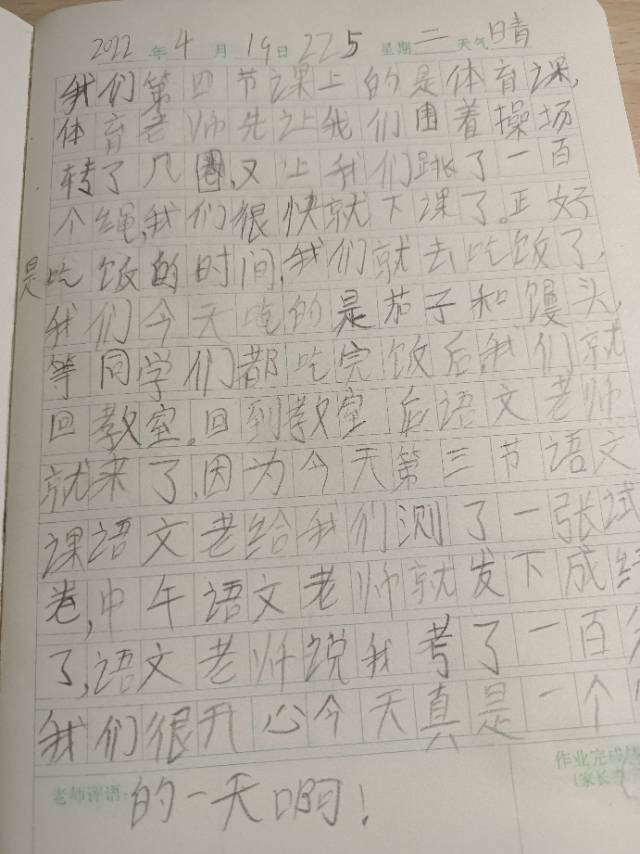 2022年4月19日 225 星期二 天气晴
我们第四节课上的是体育课,
体育老师先让我们围着操场
转了几圈,又让我们跳了一百
个绳,我们很快就下课了。正好
是吃饭的时间,我们就去吃饭了,
我们今天吃的是茄子和馒头,
等同学们都吃完饭后我们就
回教室。回到教室后语文老师
就来了,因为今天第三节语文
课语文老给我们测了一张试
卷,中午语文老师就发下成
了,语文老师说我考了一百
我们很开心今天真是一个
老师评语: 的一天啊!
作业完成
(家长